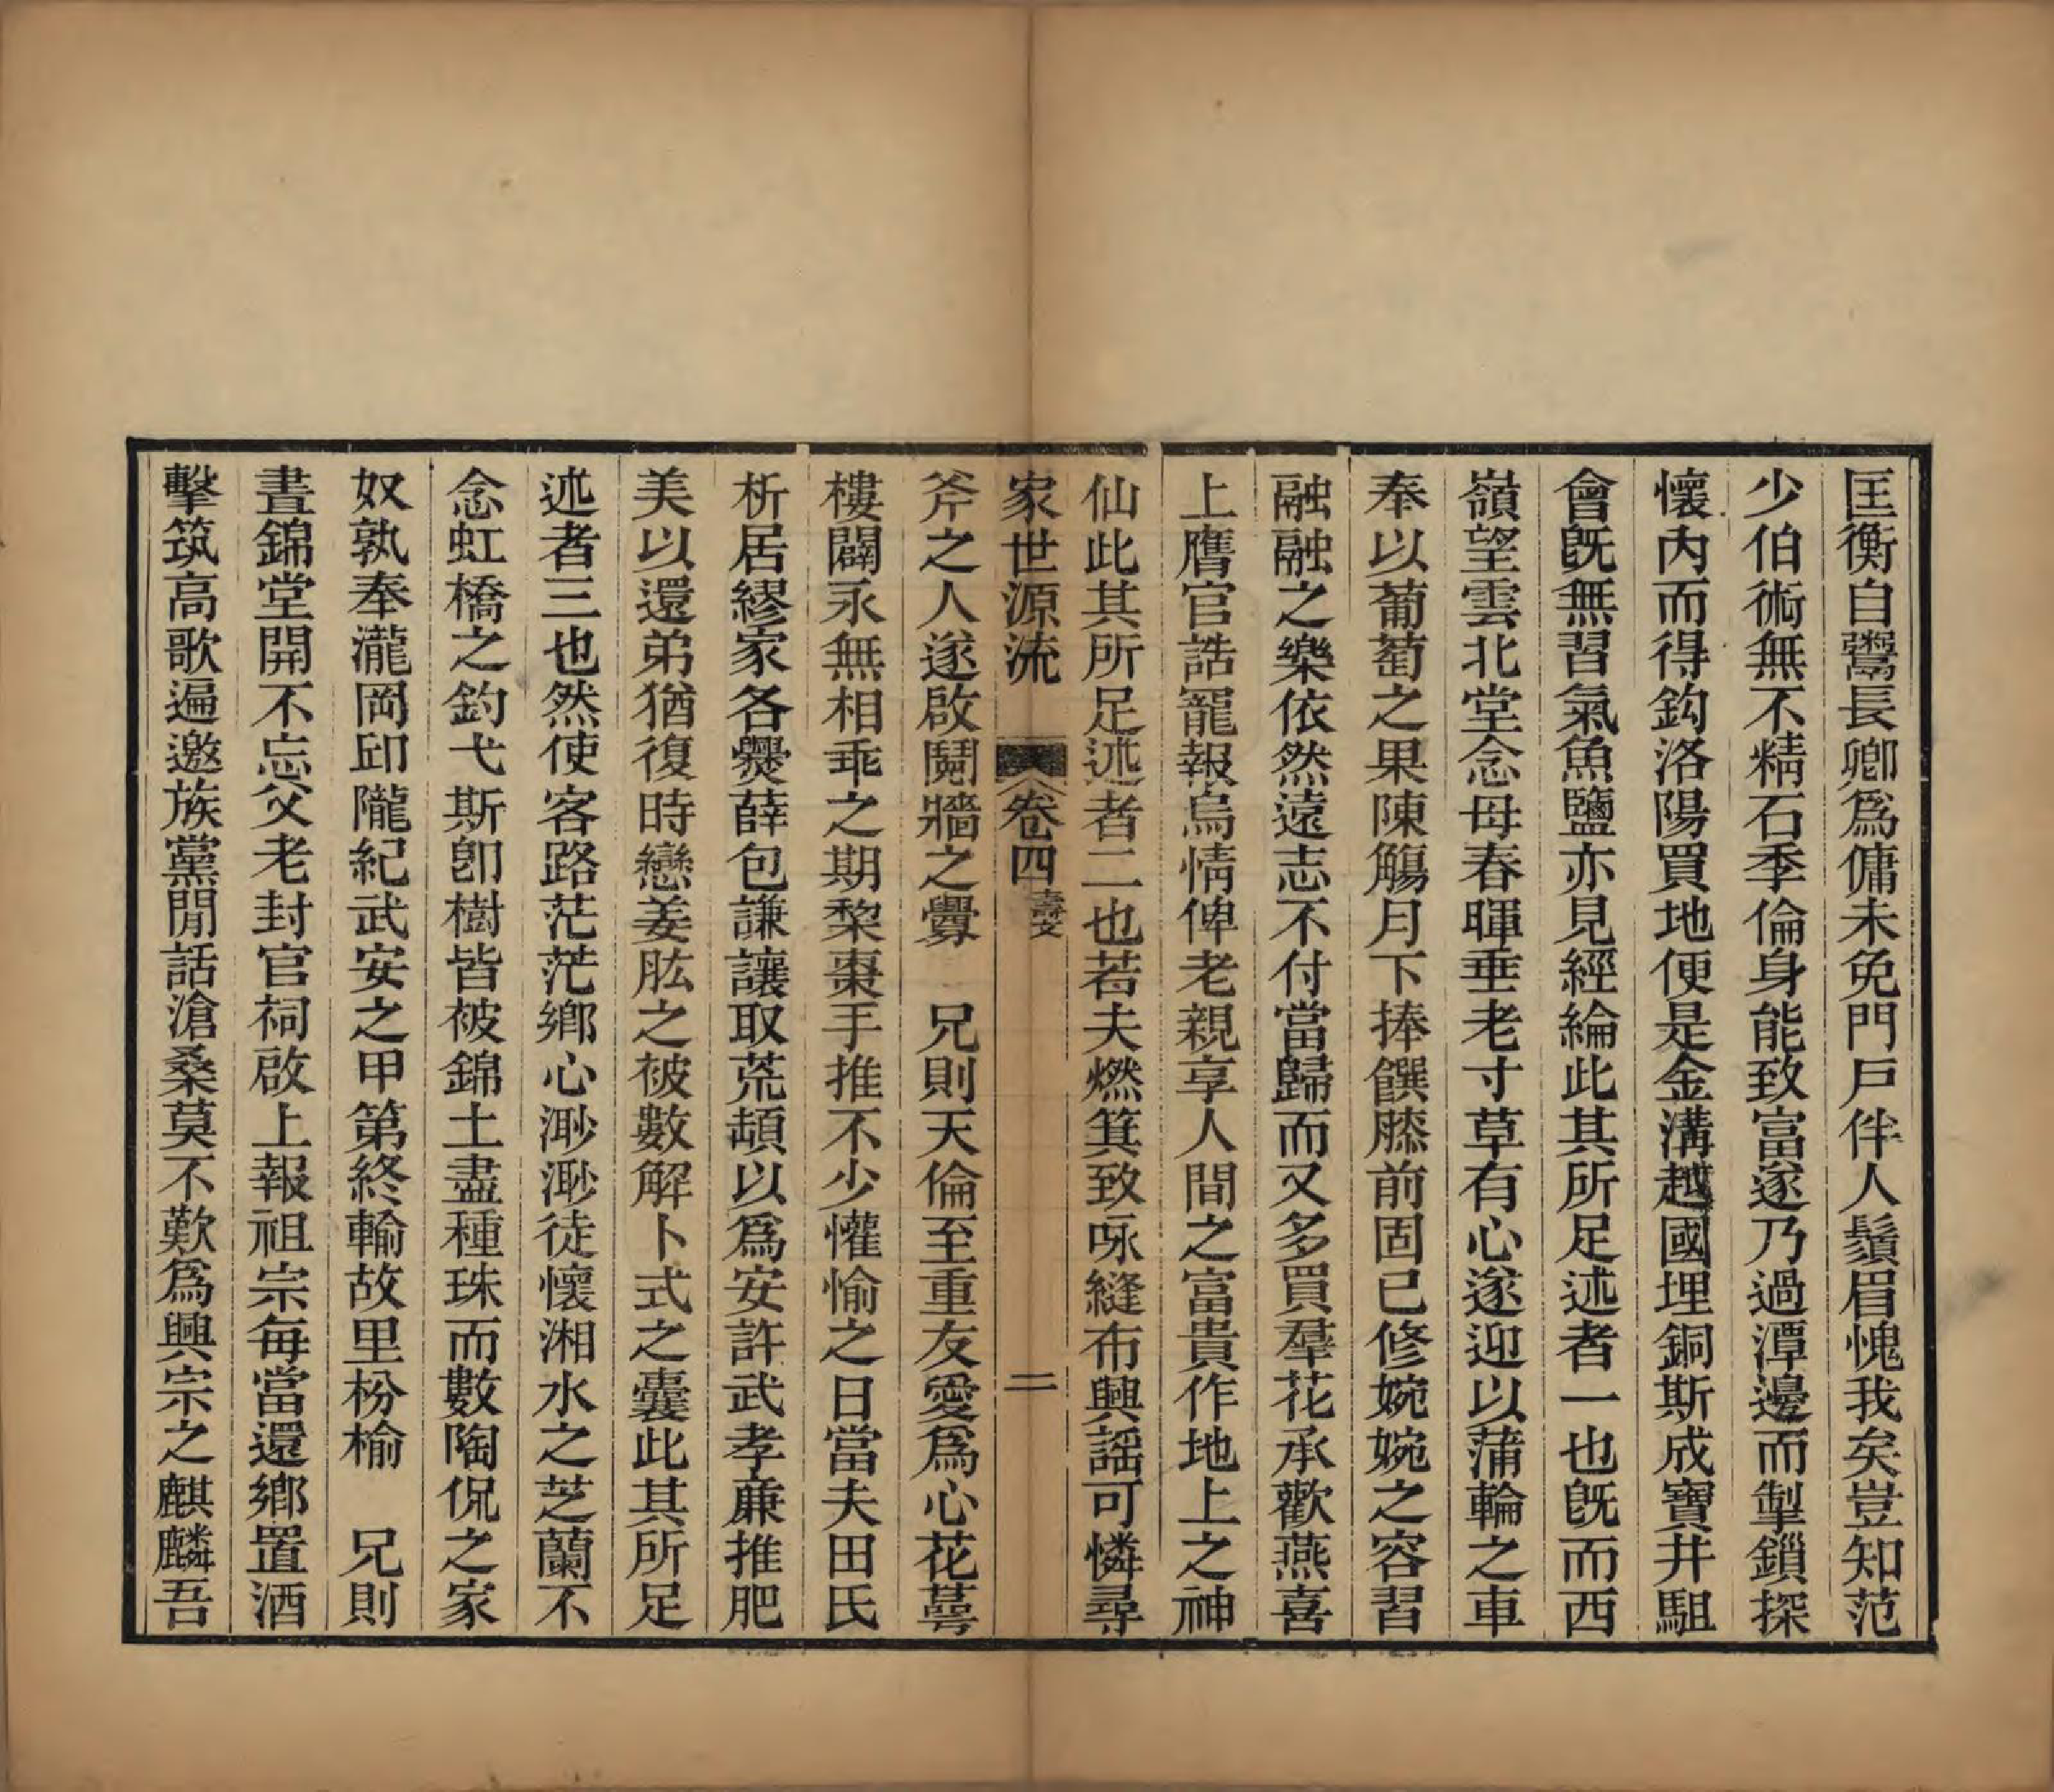 匡衡自鬻長卿爲傭未免門戸伴人鬚眉愧我矣豈知范
少伯術無不精石季倫身能致富遂乃過潭邊而掣鎖探
懷内而得鈎洛陽買地便是金溝越國埋銅斯成寶井駔
會旣無習氣魚鹽亦見經綸此其所足述者一也旣而西
嶺望雲北堂念母春暉垂老寸草有心遂迎以蒲輪之車
奉以葡萄之果陳觴月下捧饌膝前固已修婉婉之容習
融融之樂依然遠志不付當歸而又多買羣花承歡燕喜
上膺官誥寵報烏情俾老親享人間之富貴作地上之神
仙此其所足述者二也若夫燃箕致咏縫布興謡可憐尋
家世源流 卷四 壽文 二
斧之人遂啟鬩牆之釁 兄則天倫至重友愛爲心花萼
樓闢永無相乖之期黎棗手推不少懽愉之日當夫田氏
析居繆家各爨薛包謙讓取荒頓以爲安許武孝廉推肥
美以還弟猶復時戀姜肱之被數解卜式之囊此其所足
述者三也然使客路茫茫鄉心渺渺徒懷湘水之芝蘭不
念虹橋之釣弋斯卽樹皆被錦土盡種珠而數陶侃之家
奴孰奉瀧岡邱隴紀武安之甲第終輸故里枌榆 兄則
晝錦堂開不忘父老封官祠啟上報祖宗每當還鄉置酒
擊筑高歌遍邀族黨閒話滄桑莫不歎爲興宗之麒麟吾